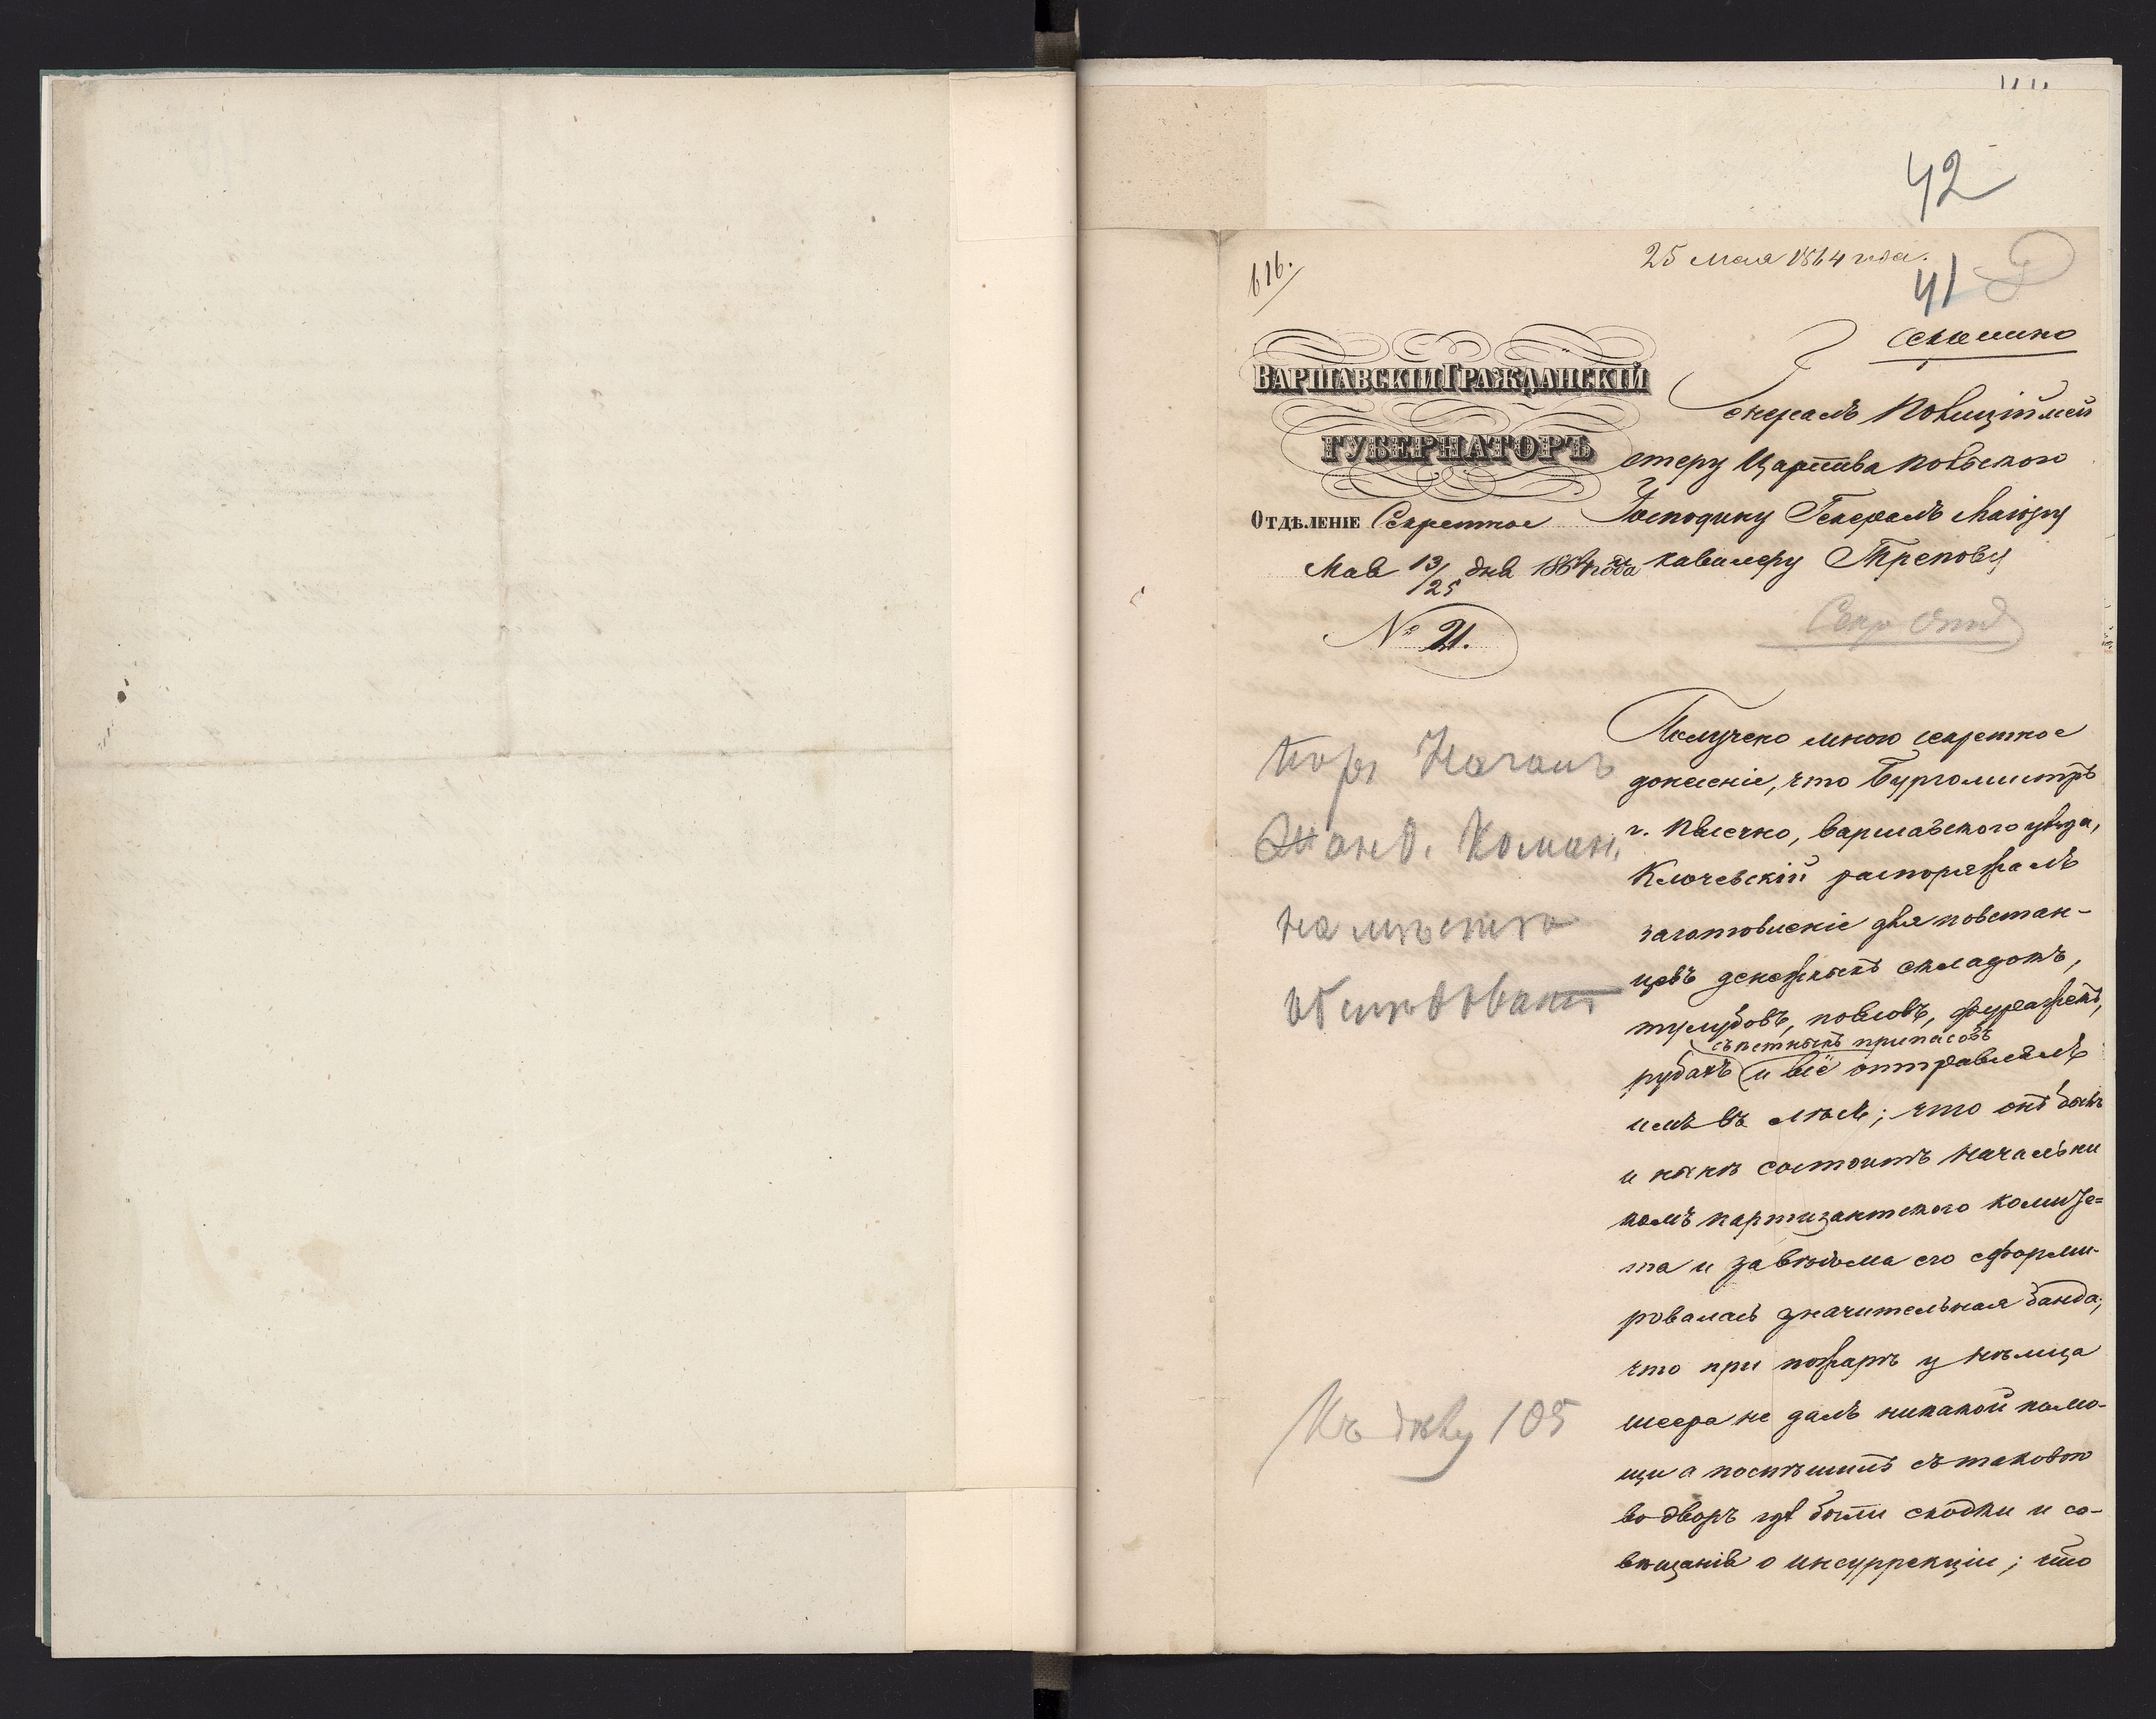 42
25 мая 1864 года.
616.
41
Секретно
ВАРШАВСКІЙ ГРАЖДАНСКІЙ
ГУБЕРНАТОРЪ
ОТДѢЛЕНІЕ Секретное
Мая 13/25 дня 1864 года
№ 21.
Генералъ Полиціймей
стеру Царства Польскаго
Господину Генералъ Маіору
и кавалеру Трепову
Секр Отд
Получено мною секретное
донесеніе, что Бургомистръ
г. Пясечно, Варшавскаго уѣзда,
Ключевскій распоряжалъ
заготовленіе для повстан-
цевъ денежныхъ складокъ,
тулубовъ, поясовъ, фуражекъ,
съѣстныхъ припасовъ
рубахъ и всё отправлялъ
имъ въ лѣсъ; что онъ былъ
и нынѣ состоитъ начальни
комъ партизантскаго комите=
та и за вѣдома его сформи-
ровалась значительная банда;
что при пожарѣ у нѣмца
не далъ никакой помо-
щи а поспѣшилъ съ таковою
во дворъ гдѣ были сходки и со-
вѣщанія о инсуррекціи; что
Началь
Жанд. Коман.
на мѣсто
Къ дѣлу 105